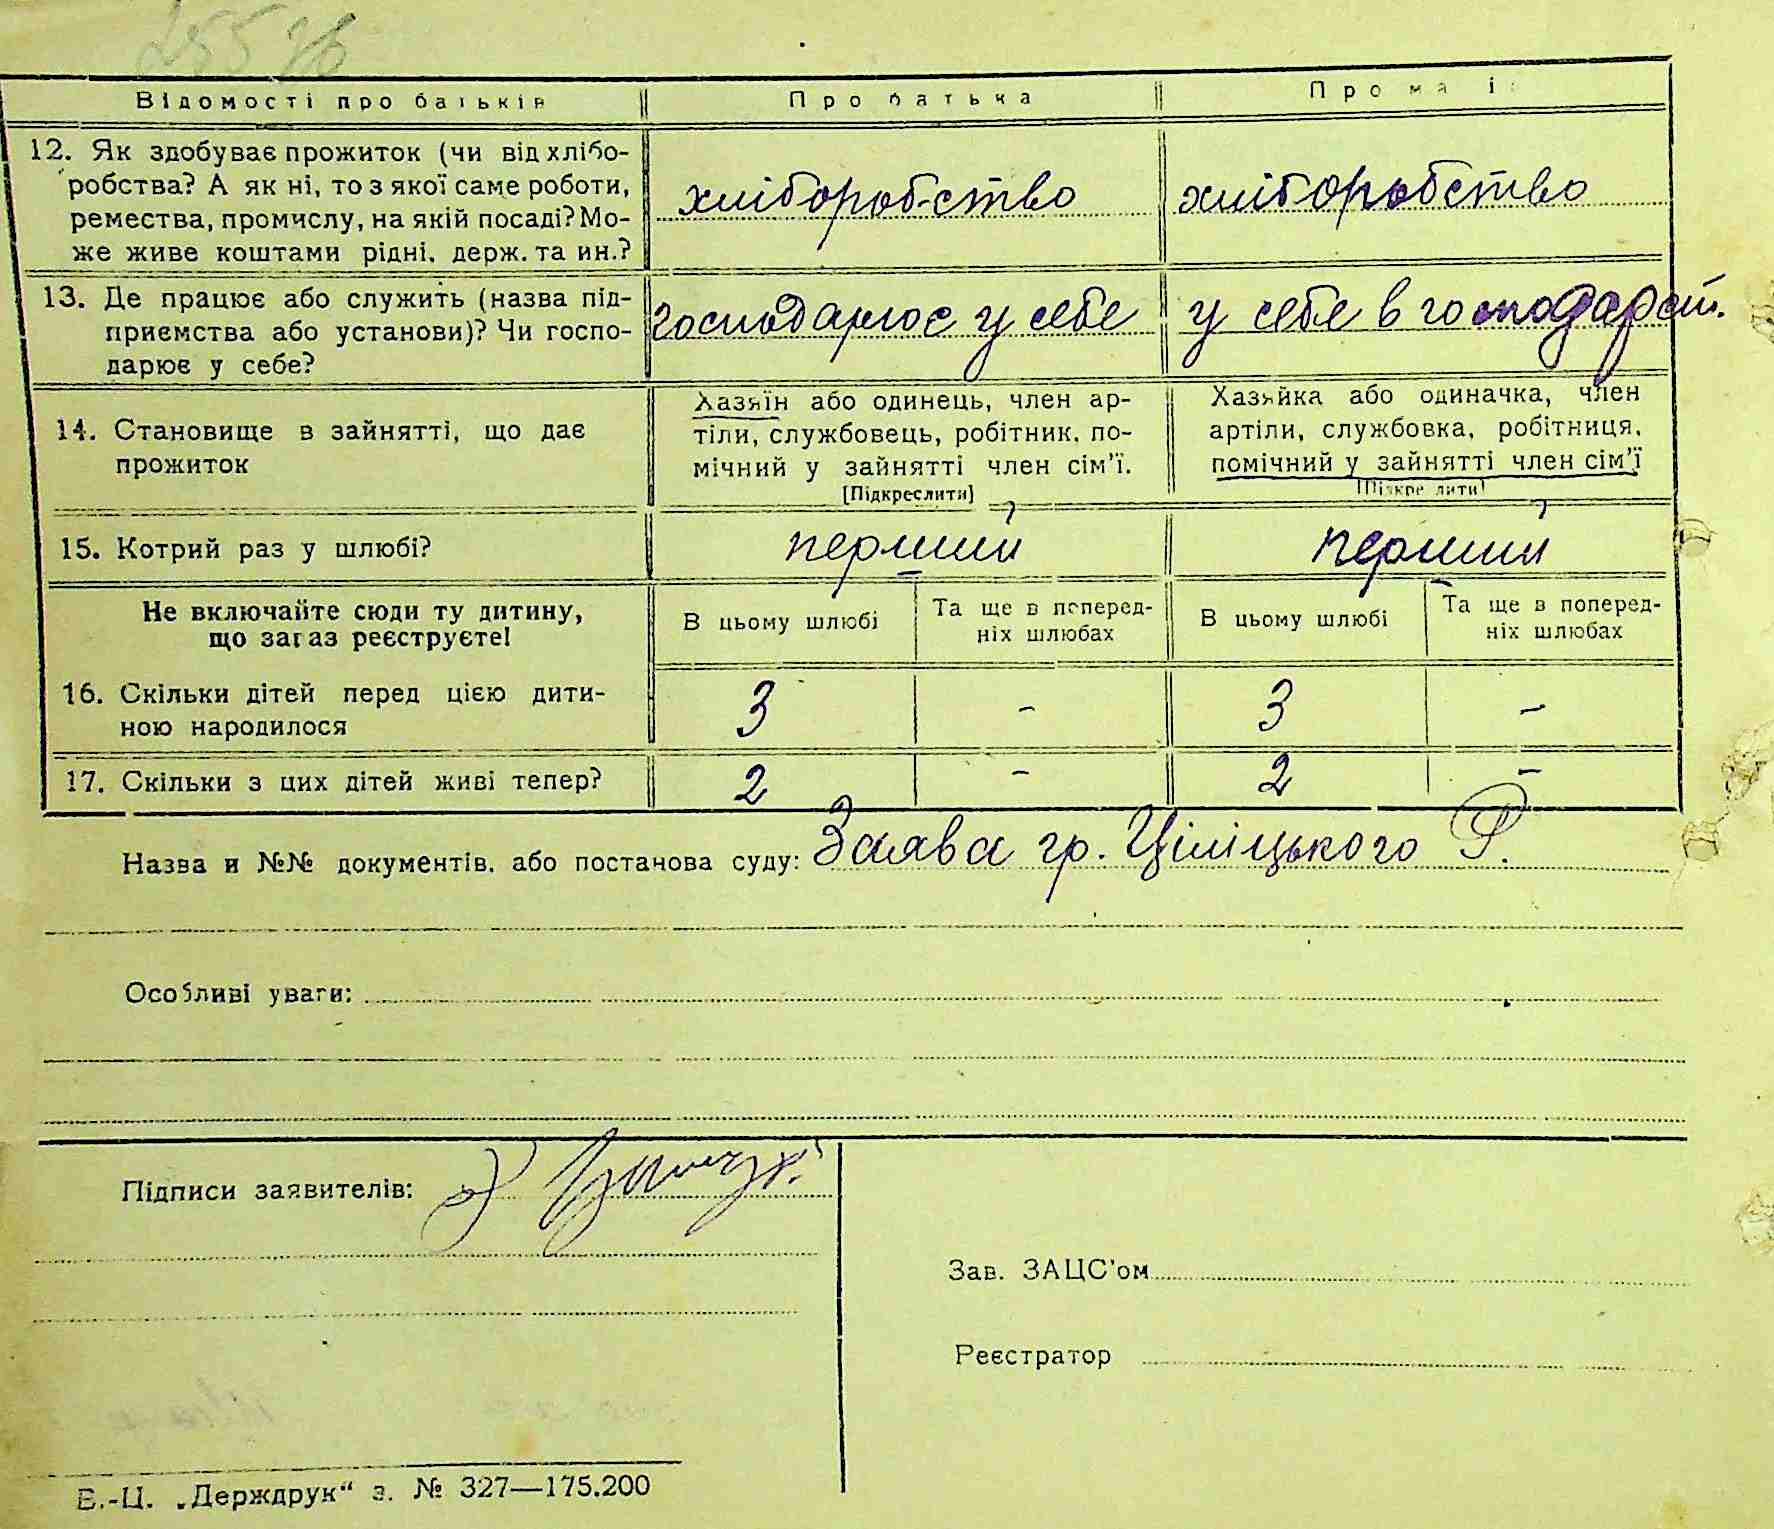 Відомості про батьків Про батька Про
12. Як здобуває прожиток (чи від хлібо-
робства? А як ні, то з якої саме роботи,
ремества, промислу, на якій посаді? Мо-
же живе коштами рідні, держ. та ин.?
хліборобство хліборобство
13. Де працює або служить (назва під-
приємства або установи)? Чи госпо-
дарює у себе?
господарює у себе у себе в господарст.
14. Становище в зайнятті, що дає
прожиток
Хазяїн або одинець, член ар-
тіли, службовець, робітник, по-
мічний у зайнятті член сім'ї.
[Підкреслити]
Хазяйка або одиначка, член
артіли, службовка, робітниця,
помічний у зайнятті член сім'ї
[Підкреслити]
15. Котрий раз у шлюбі? перший перший
Не включайте сюди ту дитину,
що зараз реєструєте!
В цьому шлюбі Та ще в поперед-
ніх шлюбах
В цьому шлюбі Та ще в поперед-
ніх шлюбах
16. Скільки дітей перед цією дити-
ною народилося
3 - 3 -
17. Скільки з цих дітей живі тепер? 2 - 2 -
Назва и №№ документів, або постанова суду: Заява гр. Ціліцького Р.
Особливі уваги:
Підписи заявителів:
Зав. ЗАЦС'ом
Реєстратор
Б.-Ц. „Держдрук“ з. № 327—175.200